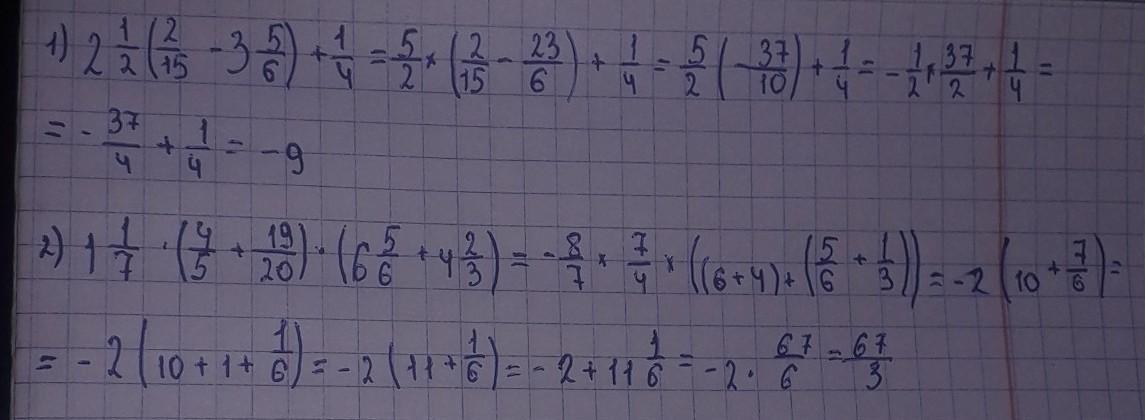 1) 2 1/2 (2/15 - 3 5/6) + 1/4 = 5/2 × (2/15 - 23/6) + 1/4 = 5/2 (- 37/10) + 1/4 = - 1/2 × 37/2 + 1/4 =
= - 37/4 + 1/4 = -9
2) 1 1/7 · (4/5 + 19/20) · (6 5/6 + 4 2/3) = - 8/7 × 7/4 × ((6+4) + (5/6 + 1/3)) = -2 (10 + 7/6) =
= - 2 (10 + 1 + 1/6) = - 2 (11 + 1/6) = - 2 + 11 1/6 = -2 · 67/6 = 67/3